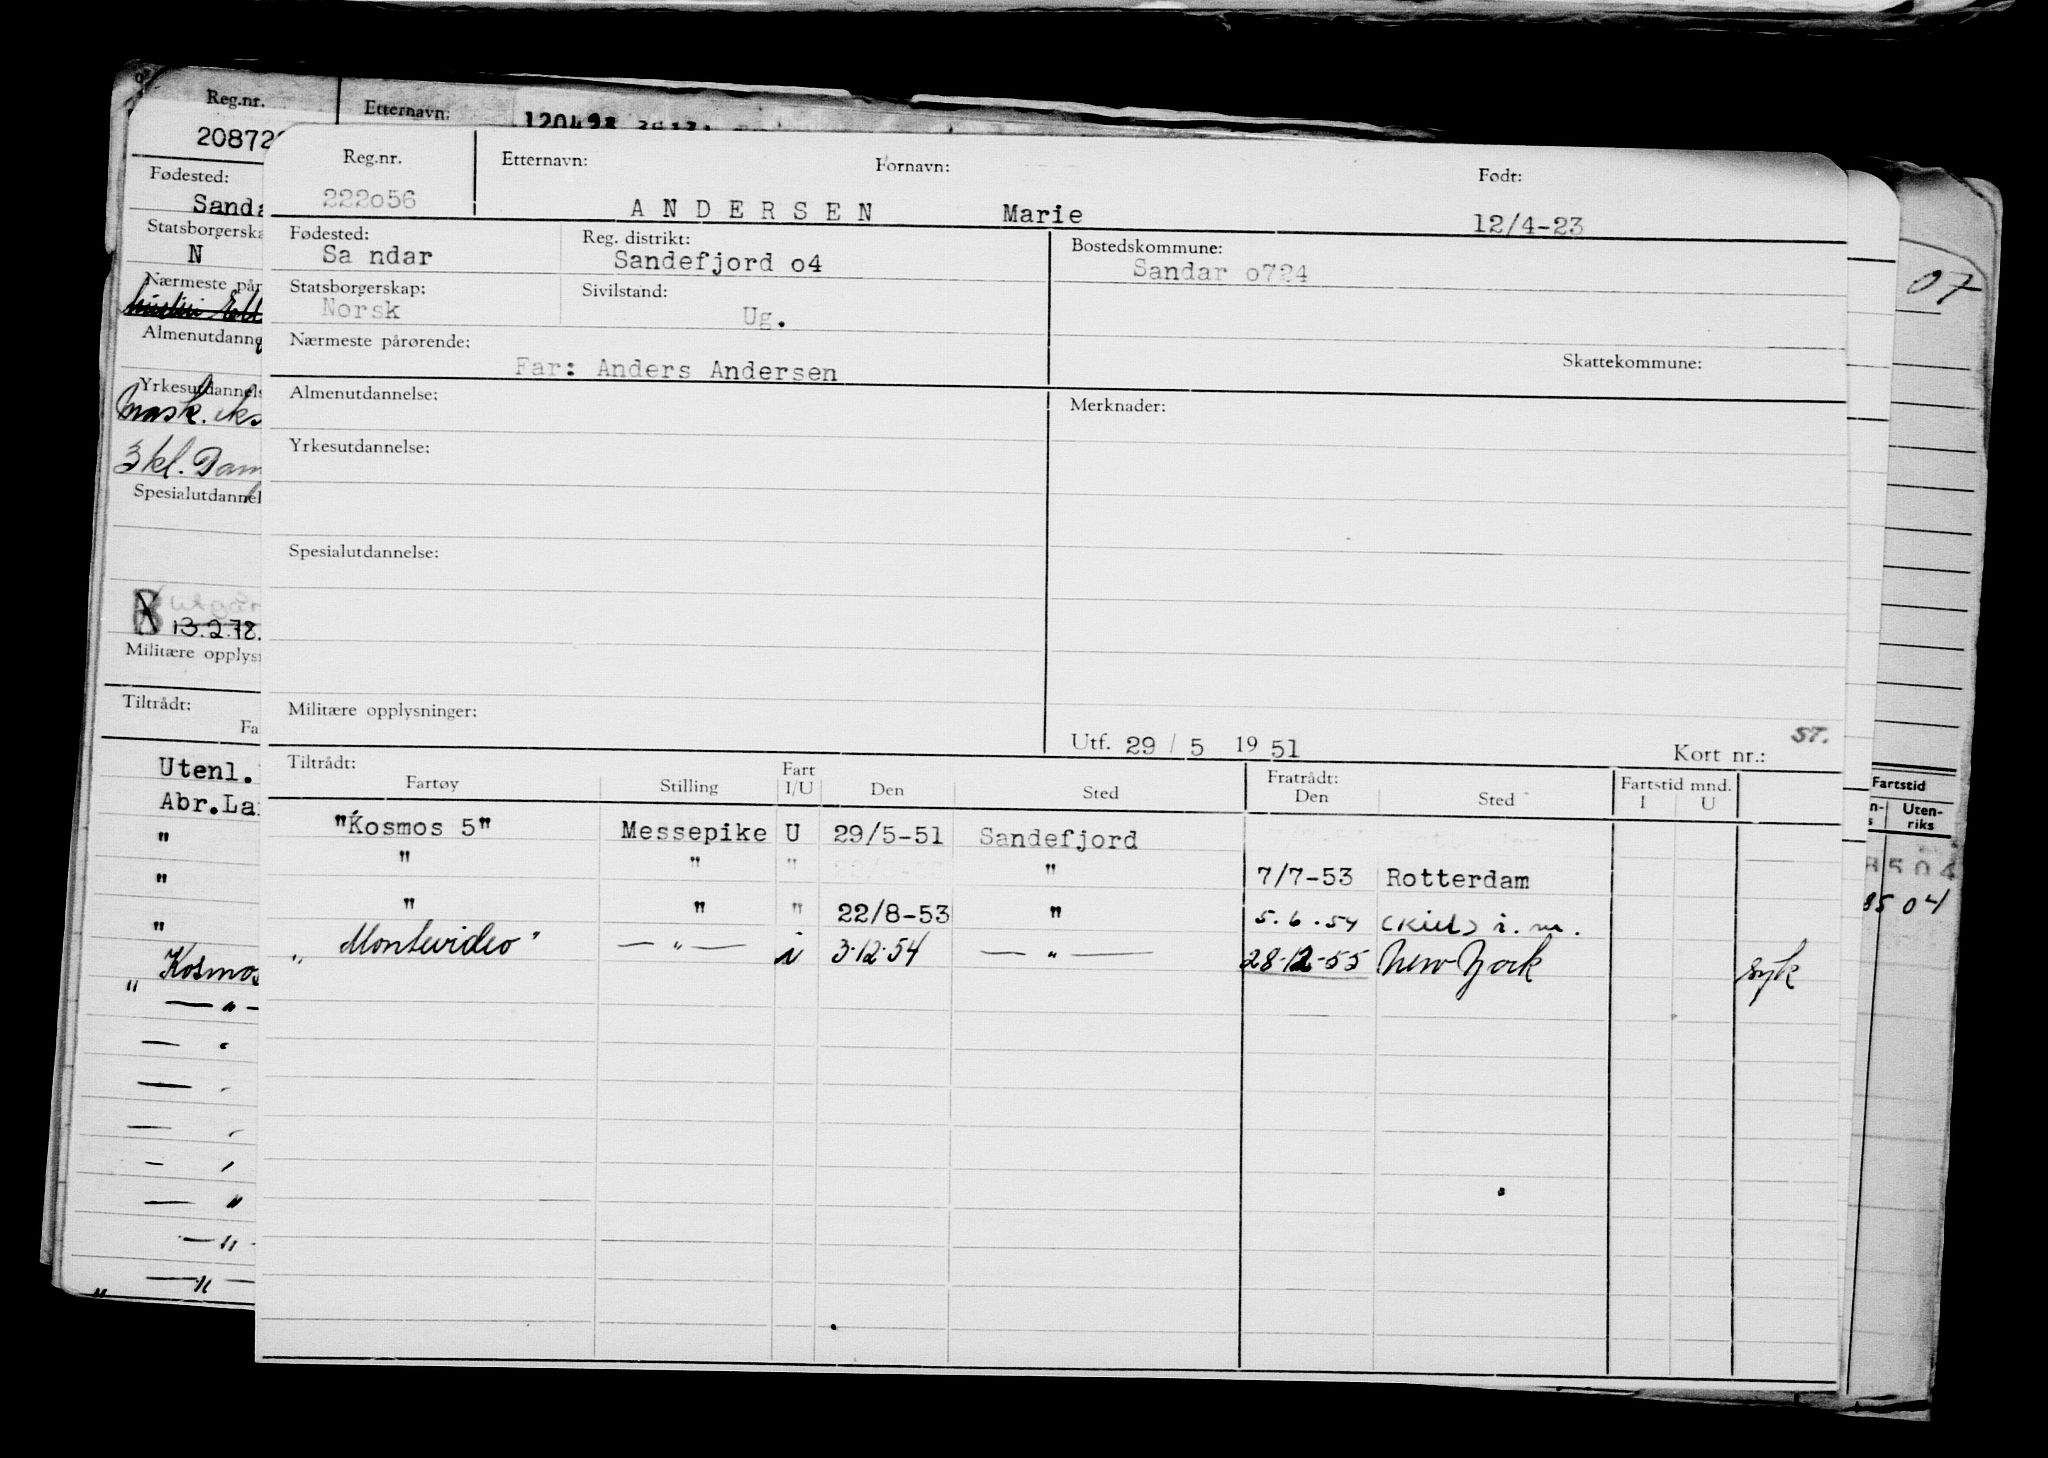 Reg.nr. Etternavn:
120498
Reg.nr. Etternavn: Fornavn: Født:
222o56 A N D E R S E N Marie 12/4-23
Fødested: Reg. distrikt: Bostedskommune:
Sa ndar Sandefjord o4 Sandar o724
Statsborgerskap: Sivilstand:
Norsk Ug.
Nærmeste pårørende: Skattekommune:
Far: Anders Andersen
Almenutdannelse: Merknader:
Yrkesutdannelse:
Spesialutdannelse:
Militære opplysninger:
ST.
Utf. 29 / 5 19 51 Kort nr.:
Tiltrådt: Fratrådt: Fartstid mnd.
Fartøy Stilling Fart I/U Den Sted Den Sted I U
"Kosmos 5" Messepike U 29/5-51 Sandefjord
" " " " 7/7-53 Rotterdam
" " " 22/8-53 " 5.6.54 (Kiel) i.m.
" Montevideo" — " — i 3.12.54 — " — 28.12-55 New York syk
20872
Fødested:
Sanda
Statsborgerska
N
Nærmeste pår
Almenutdanne
Yrkesutdannels
Mask. eks
3 kl. Dam
Spesialutdannel
13.2.78.
Militære opplysn
Tiltrådt:
Fa
Utenl.
Abr.La
"
"
"
" Kosmos
— " —
— "
— "
— "
— "
— "
— " —
" — " —
07
Fartstid
Uten-
riks
8504
8504